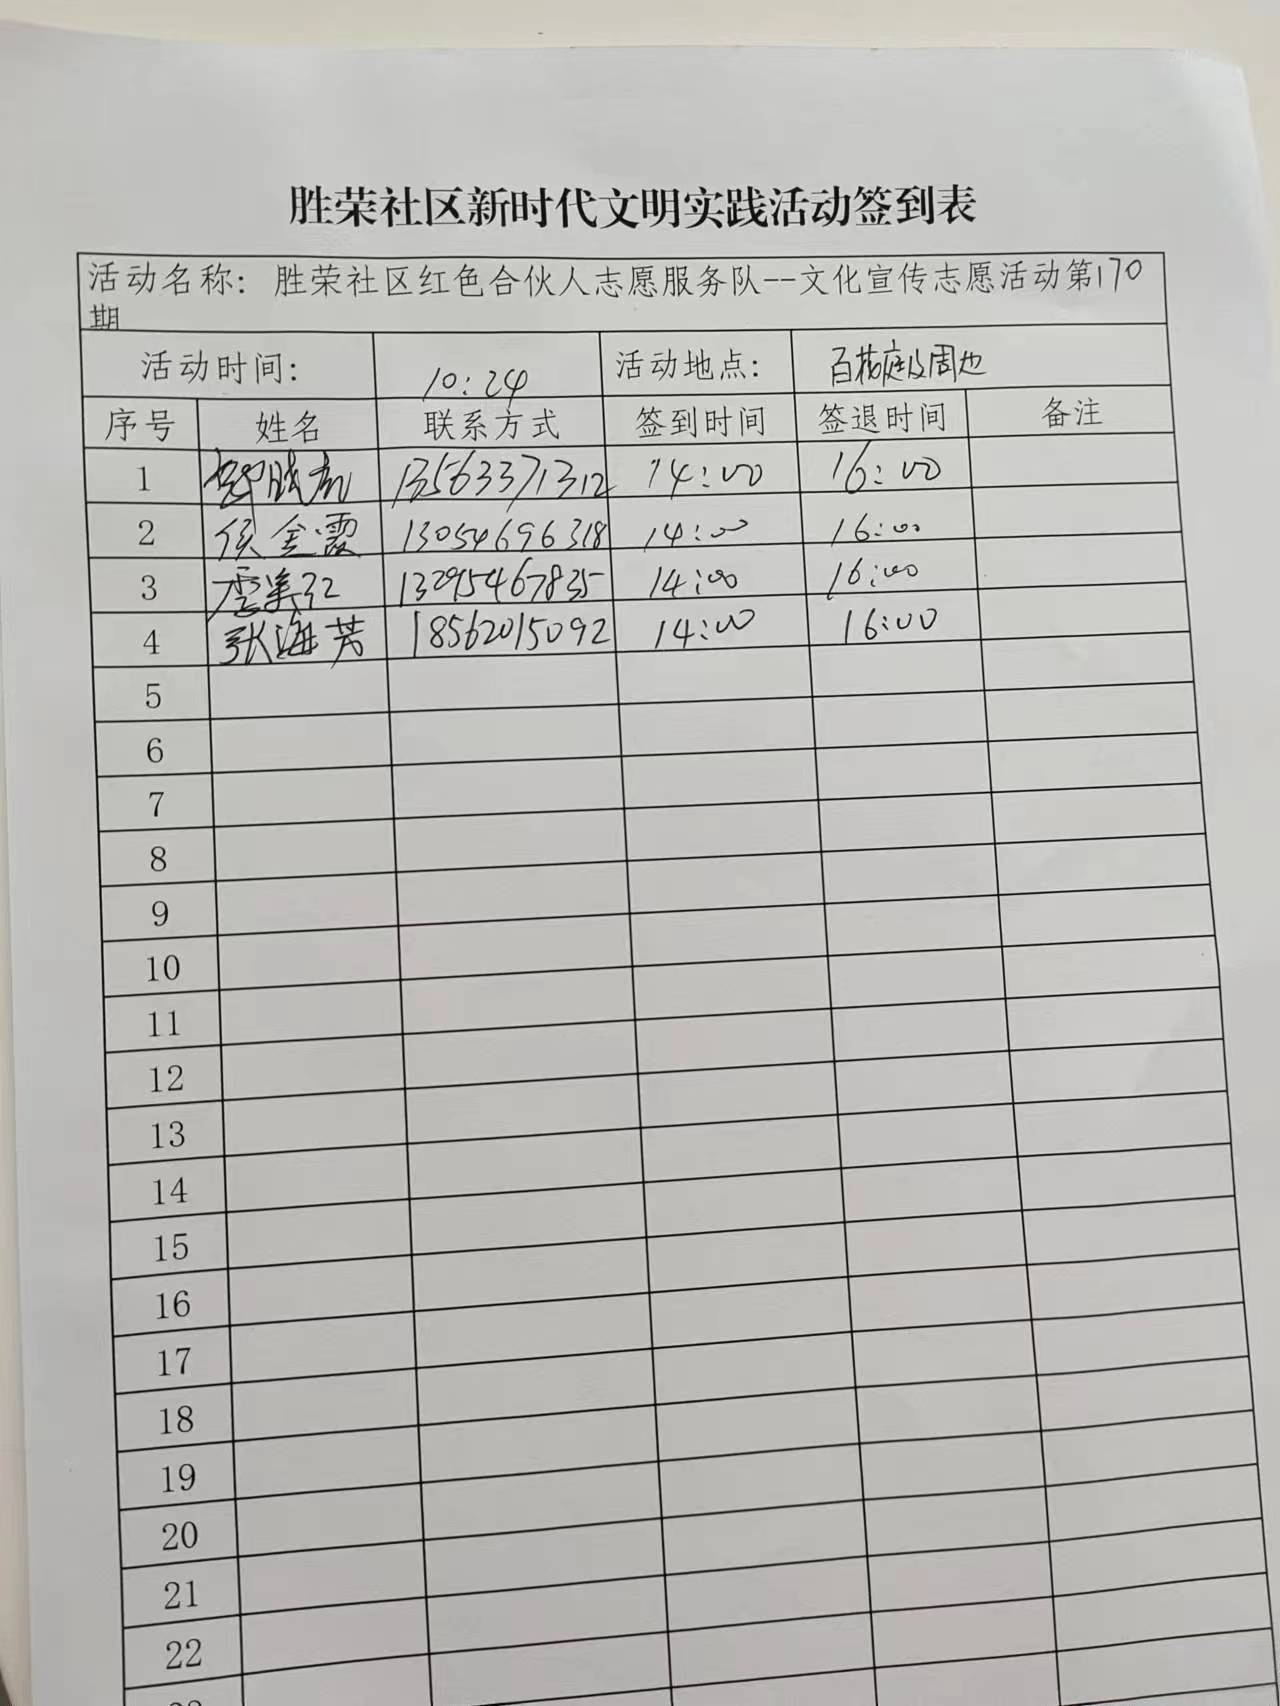 胜荣社区新时代文明实践活动签到表
活动名称：胜荣社区红色合伙人志愿服务队--文化宣传志愿活动第170
期
活动时间： 10:24 活动地点： 百花庭及周边
序号 姓名 联系方式 签到时间 签退时间 备注
1 13563371312 14:00 16:00
2 侯金霞 13054696318 14:00 16:00
3 李美红 13295467835 14:00 16:00
4 张海芳 18562015092 14:00 16:00
5
6
7
8
9
10
11
12
13
14
15
16
17
18
19
20
21
22